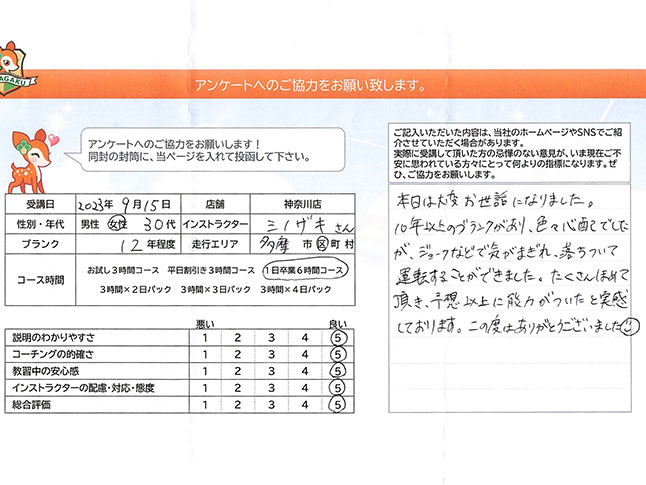 AGAKU
アンケートへのご協力をお願い致します。
アンケートへのご協力をお願いします！
同封の封筒に、当ページを入れて投函して下さい。
受講日 2023年 9月15日 店舗 神奈川店
性別・年代 男性 女性 30代 インストラクター ミノザキさん
ブランク 12年程度 走行エリア 多摩 市区町村
コース時間 お試し3時間コース 平日割引き3時間コース 1日卒業6時間コース
3時間×2日パック 3時間×3日パック 3時間×4日パック
悪い 良い
説明のわかりやすさ 1 2 3 4 5
コーチングの的確さ 1 2 3 4 5
教習中の安心感 1 2 3 4 5
インストラクターの配慮・対応・態度 1 2 3 4 5
総合評価 1 2 3 4 5
ご記入いただいた内容は、当社のホームページやSNSでご紹
介させていただく場合があります。
実際に受講して頂いた方の忌憚のない意見が、いま現在ご不
安に思われている方々にとって何よりの指標になります。ぜ
ひ、ご協力をお願いします。
本日は大変お世話になりました。
10年以上のブランクがあり、色々心配でした
が、ジョークなどで気がまぎれ、落ちついて
運転することができました。たくさんほめて
頂き、予想以上に能力がついたと実感
しております。この度はありがとうございました